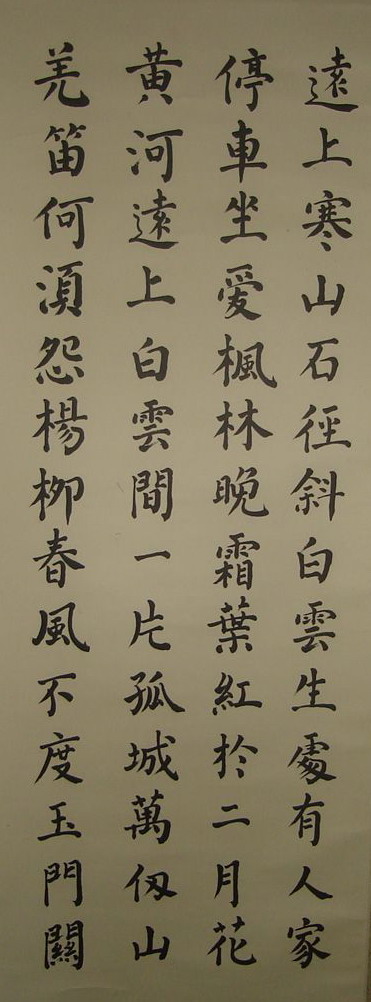 遠上寒山石徑斜白雲生處有人家
停車坐愛楓林晚霜葉紅於二月花
黃河遠上白雲間一片孤城萬仞山
羌笛何須怨楊柳春風不度玉門關